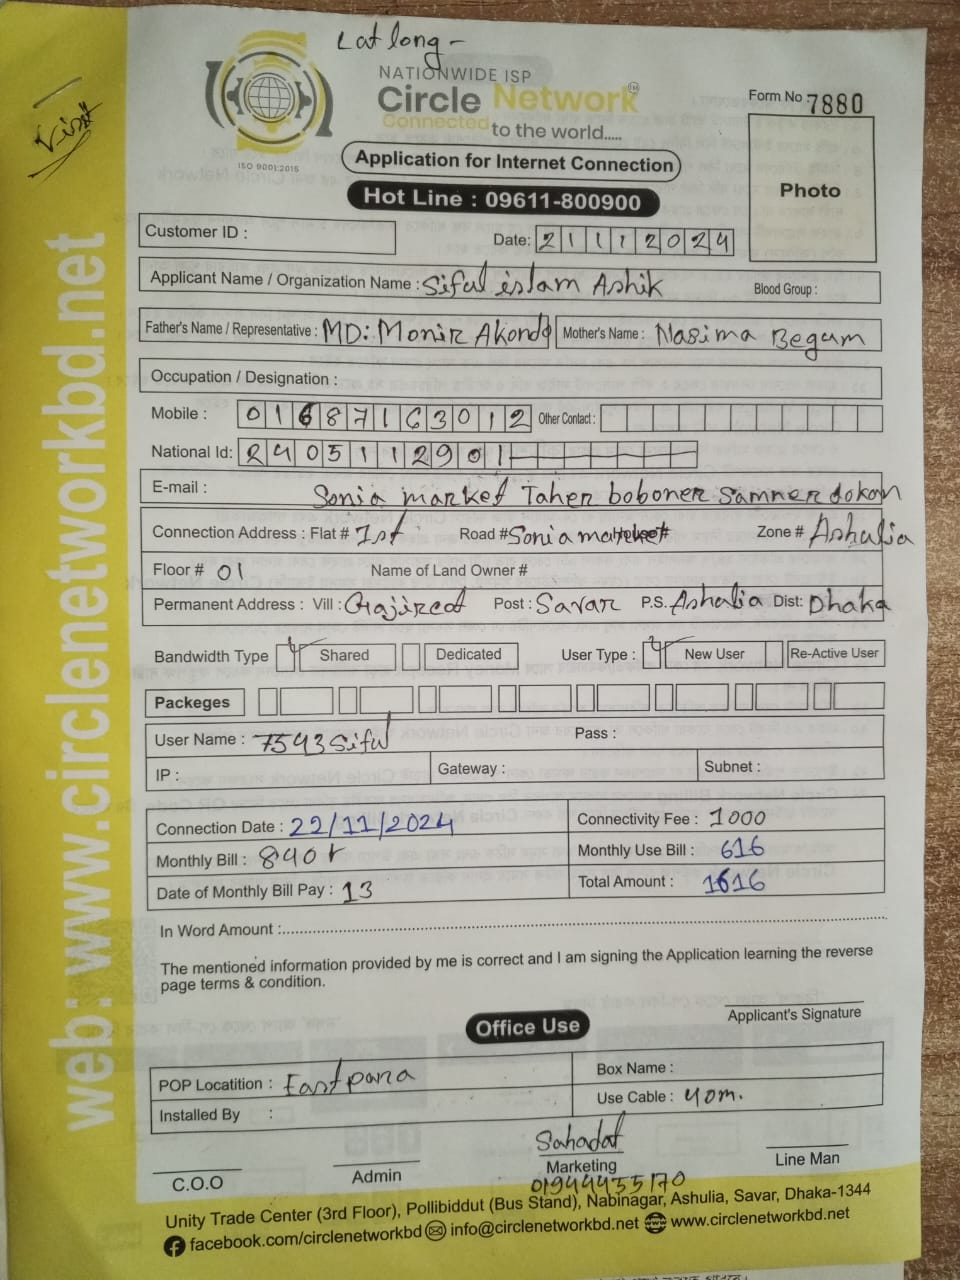 Lat long -
Visit
NATIONWIDE ISP
Circle Network
Connected to the world.....
ISO 9001:2015
Form No : 7880
Photo
Application for Internet Connection
Hot Line : 09611-800900
Customer ID :
Date: 21112024
Applicant Name / Organization Name : Siful islam Ashik Blood Group :
Father's Name / Representative : MD: Monir Akond Mother's Name : Nasima Begum
Occupation / Designation :
Mobile : 01687163012 Other Contact :
National Id: 2405112901
E-mail : Sonia market Taher boboner Samner dokan
Connection Address : Flat # 1st Road # Sonia market Zone # Ashulia
Floor # 01 Name of Land Owner #
Permanent Address : Vill : Post : Savar P.S. Ashulia Dist: Dhaka
Bandwidth Type Shared Dedicated User Type : New User Re-Active User
Packeges
User Name : 7543Siful Pass :
IP : Gateway : Subnet :
Connection Date : 22/11/2024 Connectivity Fee : 1000
Monthly Bill : 840 Monthly Use Bill : 616
Date of Monthly Bill Pay : 13 Total Amount : 1616
In Word Amount :
The mentioned information provided by me is correct and I am signing the Application learning the reverse
page terms & condition.
Applicant's Signature
Office Use
POP Locatition : Eastpara Box Name :
Installed By : Use Cable : 40m.
Sahadat
C.O.O Admin Marketing Line Man
01944455170
Unity Trade Center (3rd Floor), Pollibiddut (Bus Stand), Nabinagar, Ashulia, Savar, Dhaka-1344
facebook.com/circlenetworkbd info@circlenetworkbd.net www.circlenetworkbd.net
web: www.circlenetworkbd.net